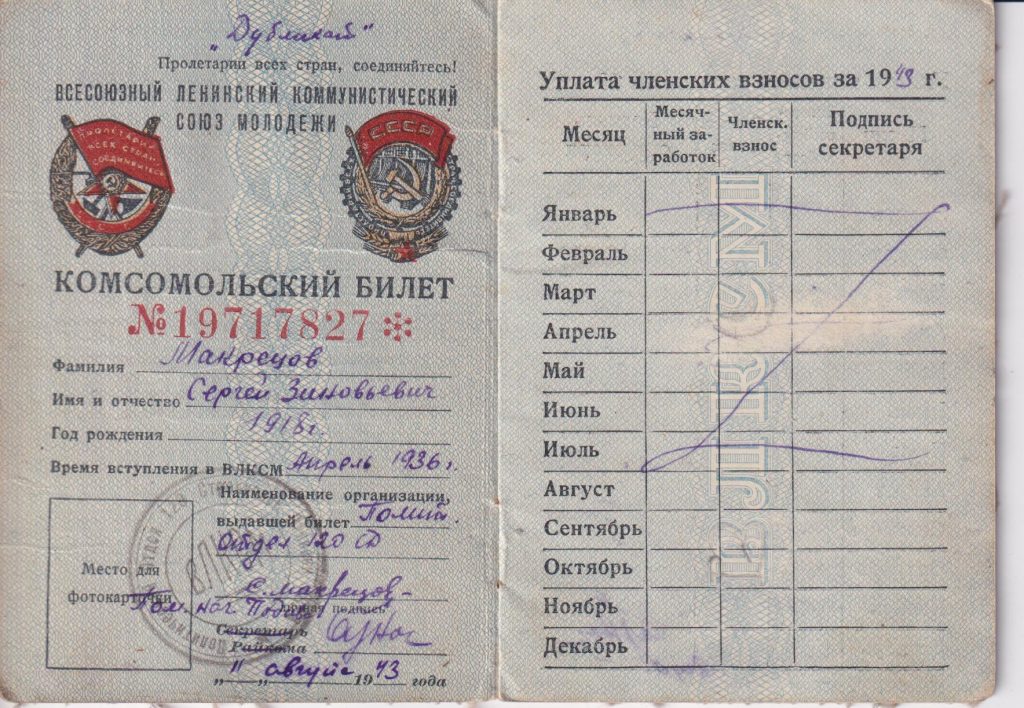 „Дубликат"
Пролетарии всех стран, соединяйтесь!
ВСЕСОЮЗНЫЙ ЛЕНИНСКИЙ КОММУНИСТИЧЕСКИЙ
СОЮЗ МОЛОДЕЖИ
ПРОЛЕТАРИИ
ВСЕХ СТРАН
СОЕДИНЯЙТЕСЬ
СССР
КОМСОМОЛЬСКИЙ БИЛЕТ
№19717827
Фамилия Макрецов
Имя и отчество Сергей Зиновьевич
Год рождения 1918г
Время вступления в ВЛКСМ Апрель 1936 г.
Наименование организации,
выдавшей билет Полит.
отдел 120 СД
Место для
фотокарточки
С. Макрецов
Пом. нач. Подив
Личная подпись
Секретарь
Райкома
„ " август 1943 года
Уплата членских взносов за 1943 г.
Месяц
Месяч-
ный за-
работок
Членск.
взнос
Подпись
секретаря
Январь
Февраль
Март
Апрель
Май
Июнь
Июль
Август
Сентябрь
Октябрь
Ноябрь
Декабрь
ВЛКСМ